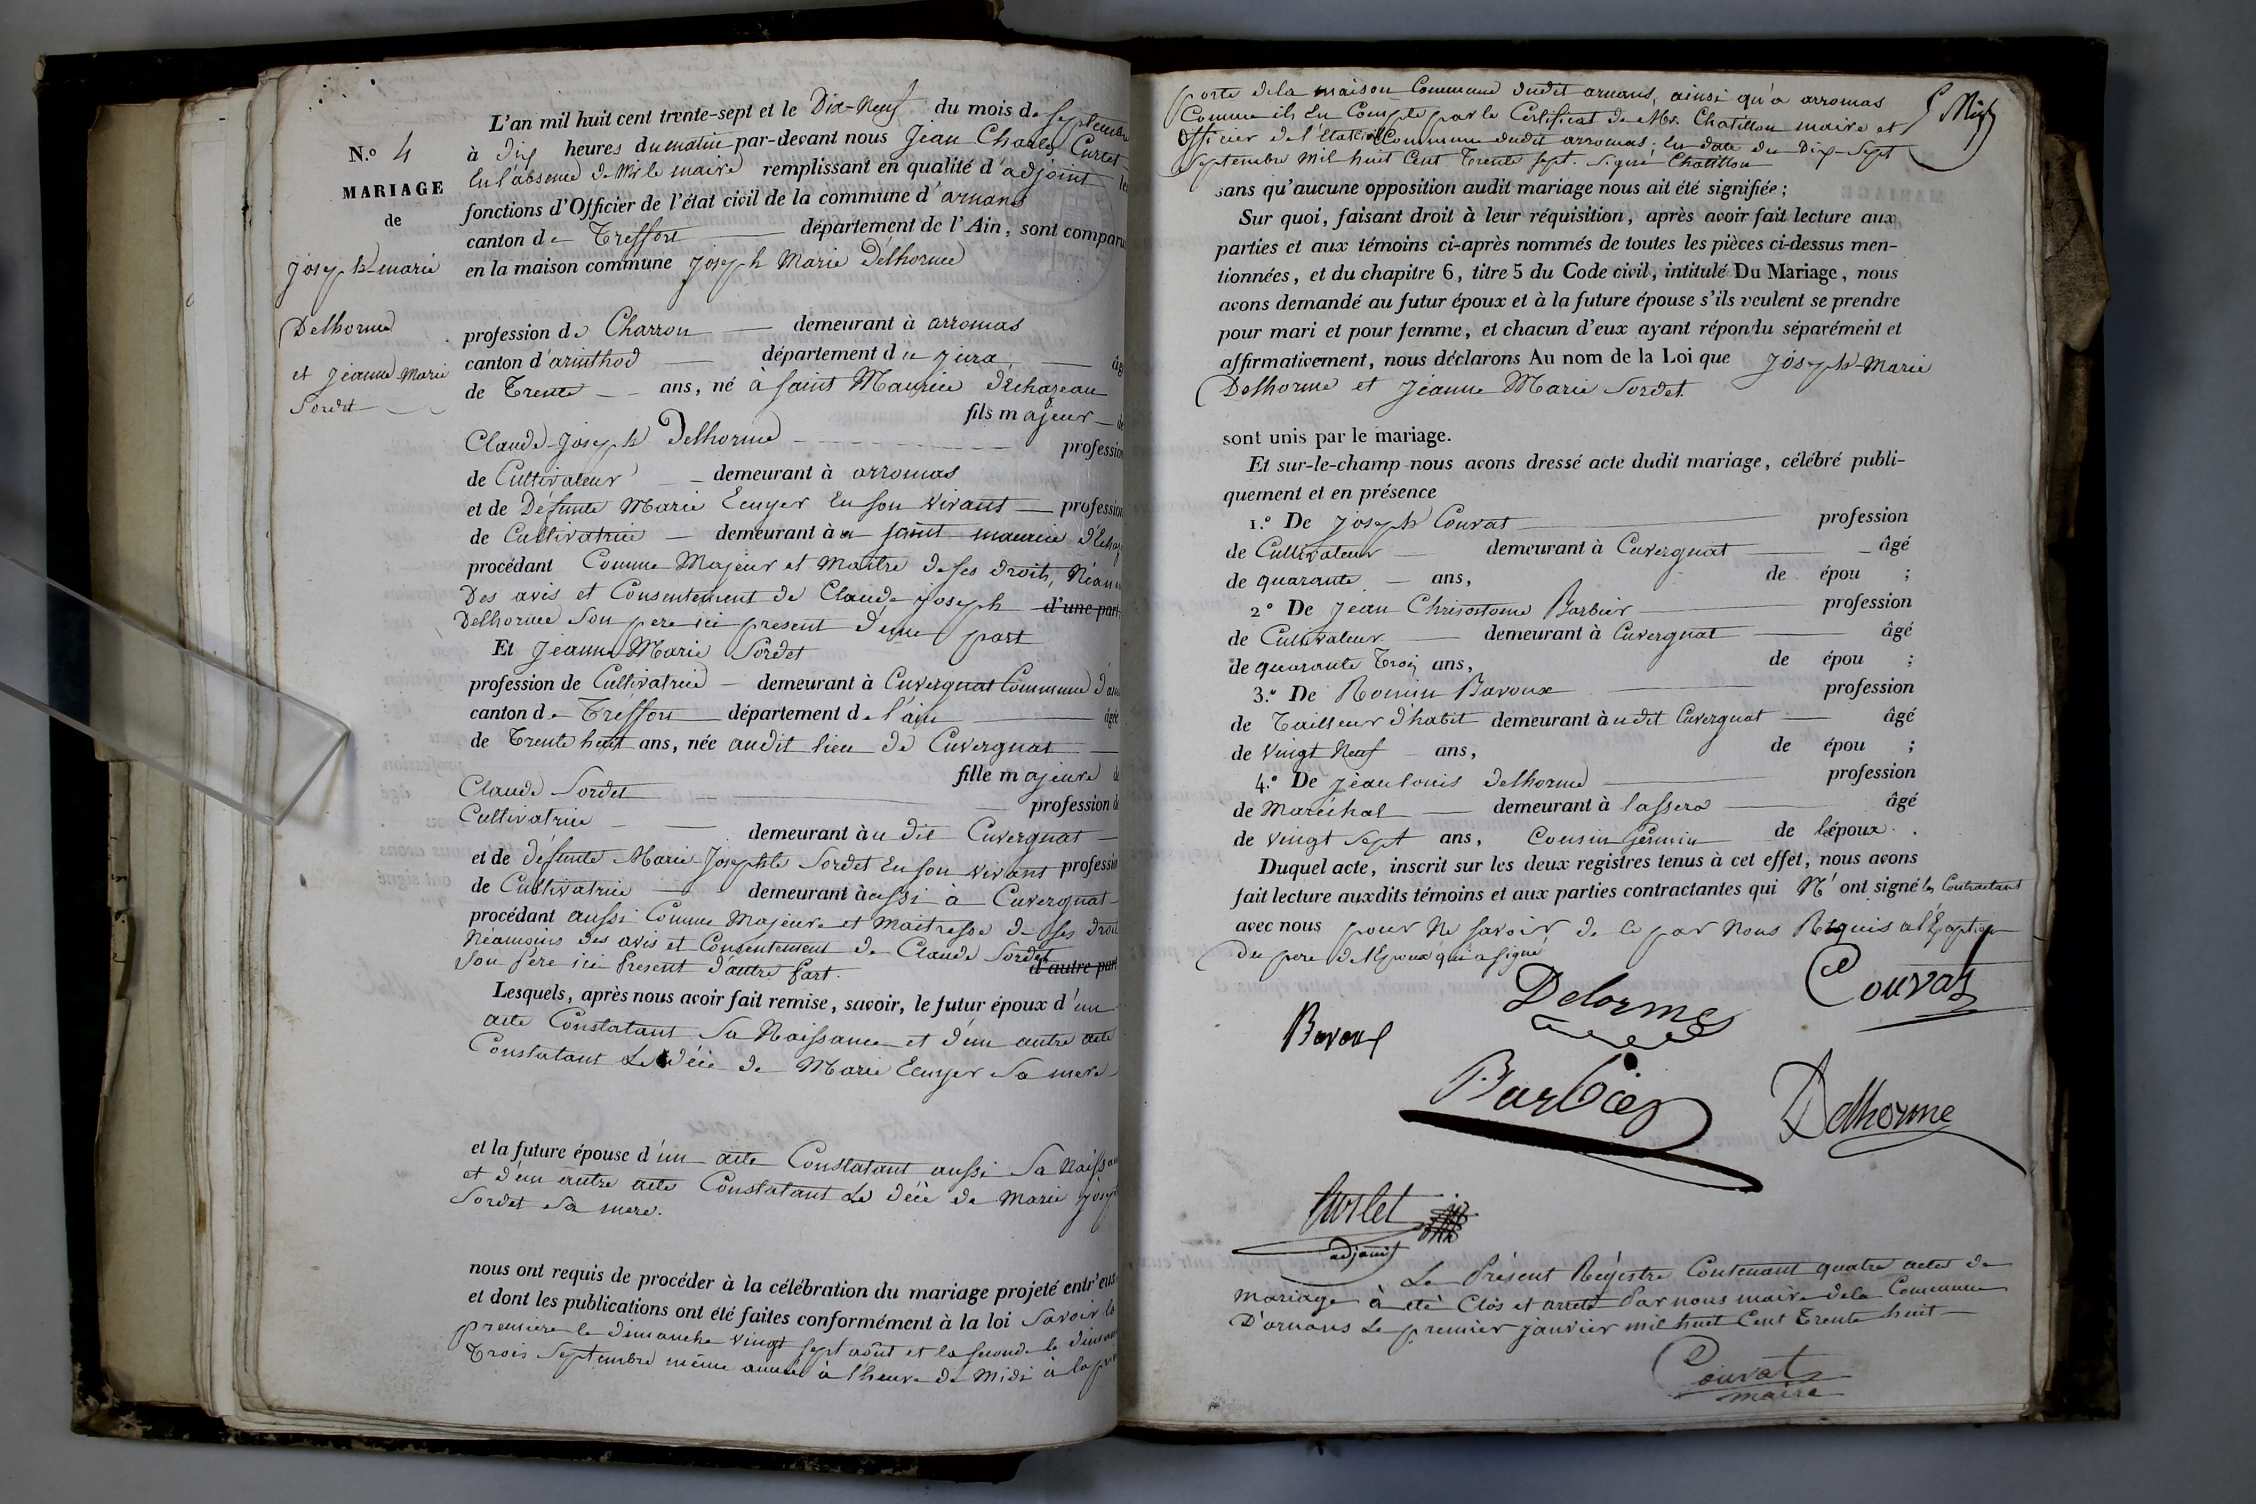 N.º 4
MARIAGE
de
Joseph-marie
Delhorme
et Jeanne Marie
Sordet
L'an mil huit cent trente-sept et le Dix-Neuf du mois de septembre
à dix heures du matin par-devant nous Jean Charles Curtet
En l'absence de Mr le maire remplissant en qualité d'adjoint les
fonctions d'Officier de l'état civil de la commune d'arnans
canton de Treffort département de l'Ain, sont comparu
en la maison commune Joseph Marie Delhorme
profession de Charron demeurant à arromas
canton d'arinthod département du jura âg
de Trente ans, né à saint Maurice d'échazeau
fils majeur de
Claude-Joseph Delhorme profession
de Cultivateur demeurant à arromas
et de Défunte Marie Ecuyer En son vivant profession
de Cultivatrice demeurant à saint maurice d'Echaz
procédant Comme Majeur et Maître de ses droits, Néanm
Des avis et Consentement de Claude joseph d'une part,
Delhorme Son pere ici présent d'une part
Et Jeanne Marie Sordet
profession de Cultivatrice demeurant à Cuvergnat Commune d'arn
canton de Treffort département de l'ain âgée
de Trente huit ans, née audit lieu de Cuvergnat
fille majeure de
Claude Sordet profession de
Cultivatrice demeurant àu dit Cuvergnat
et de défunte Marie Josephte Sordet En son vivant profession
de Cultivatrice demeurant àussi à Cuvergnat
procédant aussi Comme Majeure et Maitresse de ses droit
Néamoins des avis et Consentement de Claude Sordet
Son pere ici Present d'autre part. d'autre part
Lesquels, après nous avoir fait remise, savoir, le futur époux d'un
acte Constatant Sa Naissance et d'un autre acte
Constatant Le décè de Marie Ecuyer Sa mere
et la future épouse d'un acte Constatant aussi Sa Naissan
et d'un autre acte Constatant Le décè de Marie Josep
Sordet Sa mere.
nous ont requis de procéder à la célébration du mariage projeté entr'eux
et dont les publications ont été faites conformément à la loi Savoir la
premiere le dimanche vingt sept août et la seconde le diman
Trois Septembre même année à l'heure de Midi à la por
porte de la maison Commune dudit arnans, ainsi qu'a arromas
Comme ils En Compte par le Certificat de Mr. Chatillon maire et
Officier de l'Etat civil Commune dudit arromas; En date du Dix-Sept
Septembre Mil huit Cent Trente sept. Signé Chatillon
sans qu'aucune opposition audit mariage nous ait été signifiée;
Sur quoi, faisant droit à leur réquisition, après avoir fait lecture aux
parties et aux témoins ci-après nommés de toutes les pièces ci-dessus men-
tionnées, et du chapitre 6, titre 5 du Code civil, intitulé Du Mariage, nous
avons demandé au futur époux et à la future épouse s'ils veulent se prendre
pour mari et pour femme, et chacun d'eux ayant répondu séparément et
affirmativement, nous déclarons Au nom de la Loi que Joseph-Marie
Delhorme et Jeanne Marie Sordet.
sont unis par le mariage.
Et sur-le-champ nous avons dressé acte dudit mariage, célébré publi-
quement et en présence
1.º De Joseph Couvat profession
de Cultivateur demeurant à Cuvergnat âgé
de quarante ans, de épou ;
2º De Jean Chrisostome Barbier profession
de Cultivateur demeurant à Cuvergnat âgé
de quarante Trois ans, de épou ;
3.º De Romin Bavoux profession
de Tailleur d'habit demeurant àudit Cuvergnat âgé
de Vingt Neuf ans, de épou ;
4.º De Jean louis Delhorme profession
de Maréchal demeurant à lassera âgé
de Vingt Sept ans, Cousin Germin de l'époux.
Duquel acte, inscrit sur les deux registres tenus à cet effet, nous avons
fait lecture auxdits témoins et aux parties contractantes qui N'ont signé les Contractant
avec nous pour Ne savoir de ce par Nous Requis a l'Exaption
Du pere de l'Epoux qui a signé
Delorme
Couvat
Bavoux
Barbier
Delhorme
Curtet
adjoint
Le Présent Régistre Contenant quatre actes de
Mariage à été Clos et arreté Par nous maire de la Commune
D'arnans Le premier janvier mil huit Cent Trente huit
Couvat
maire